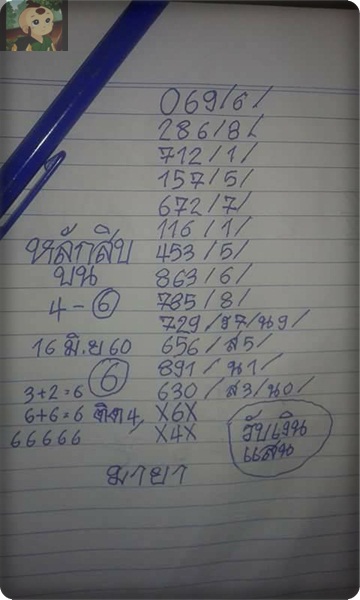 069/6/
286/8/
712/1/
157/5/
672/7/
116/1/
453/5/
863/6/
785/8/
729/ร7/น9/
656/ส5/
891/น1/
630/ส3/น0/
X6X
X4X
หลักสิบ
บน
4-6
16 มิ.ย 60
6
3+2=6
6+6=6 ติด4,
66666
รับเงิน
แสน
มายา